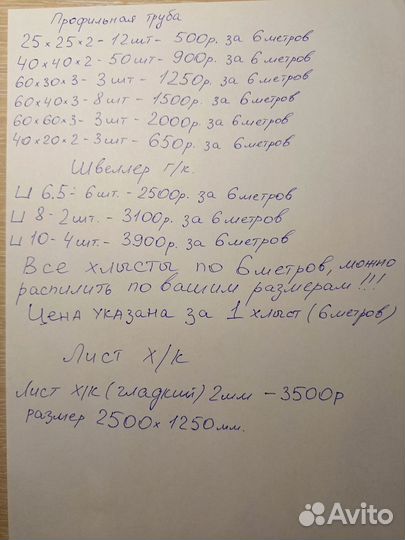 Профильная труба
25×25×2 - 12шт - 500р. за 6 метров
40×40×2 - 50шт - 900р. за 6 метров
60×30×3 - 3 шт - 1250р. за 6 метров
60×40×3 - 8шт - 1500р. за 6 метров
60×60×3 - 3шт - 2000р. за 6 метров
40×20×2 - 3шт - 650р. за 6 метров
Швеллер г/к.
⊔ 6.5 - 6 шт. - 2500р. за 6 метров
⊔ 8 - 2шт. - 3100р. за 6 метров
⊔ 10 - 4шт - 3900р. за 6 метров
Все хлысты по 6 метров, можно
распилить по вашим размерам!!!
Цена указана за 1 хлыст (6 метров)
Лист х/к
Лист х/к (гладкий) 2мм - 3500р
размер 2500×1250мм.
Avito